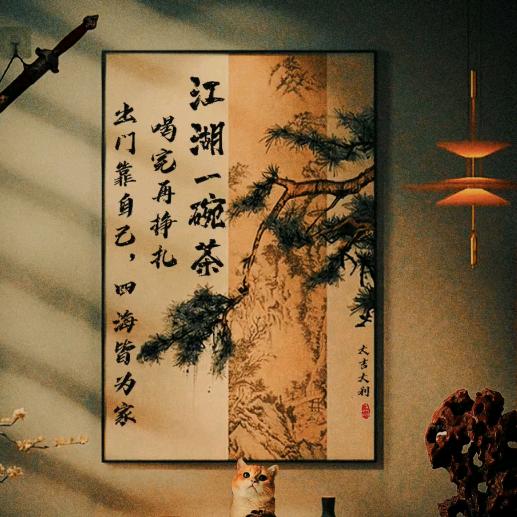 江湖一碗茶
喝完再挣扎
出门靠自己，四海皆为家
大吉大利